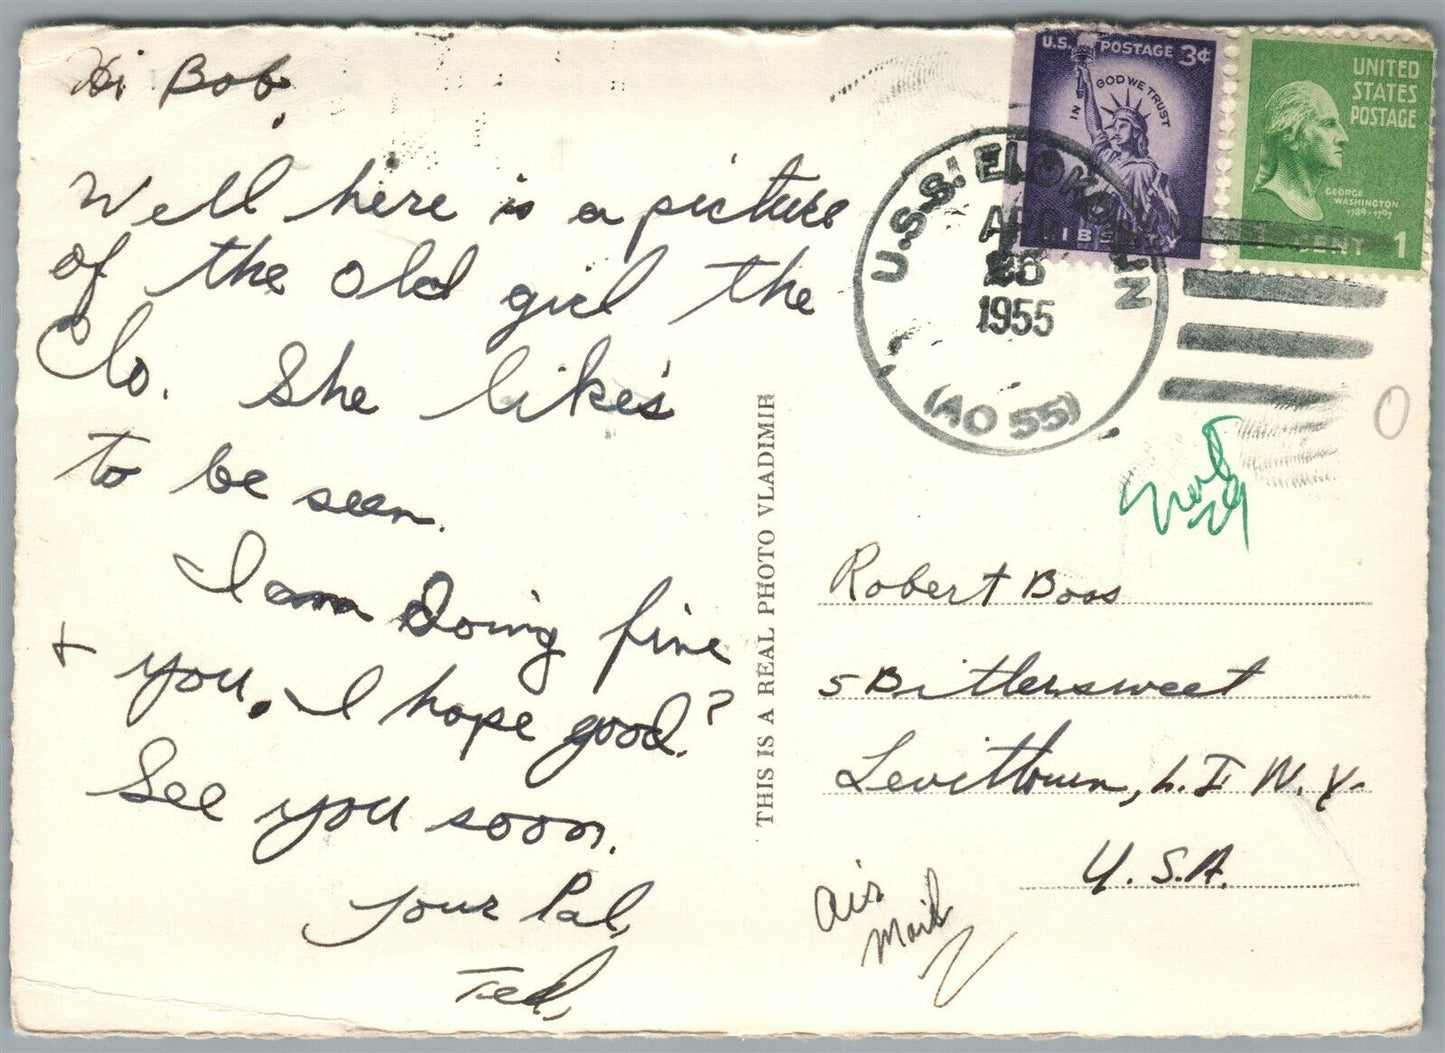 Hi Bob,
Well here is a picture
of the old girl the
"lo. She like's
to be seen.
I am doing fine
+ you, I hope good?
See you soon.
Your Pal,
Ted,
THIS IS A REAL PHOTO VLADIMIR
U.S. POSTAGE 3¢
IN GOD WE TRUST
LIBERTY
UNITED
STATES
POSTAGE
GEORGE
WASHINGTON
1789-1797
1 CENT 1
U.S.S. ELOKOMIN
APR
26
1955
(AO 55)
Robert Boos
5 Bittersweet
Levittown, L. I N. Y.
U. S. A.
Air
Mail